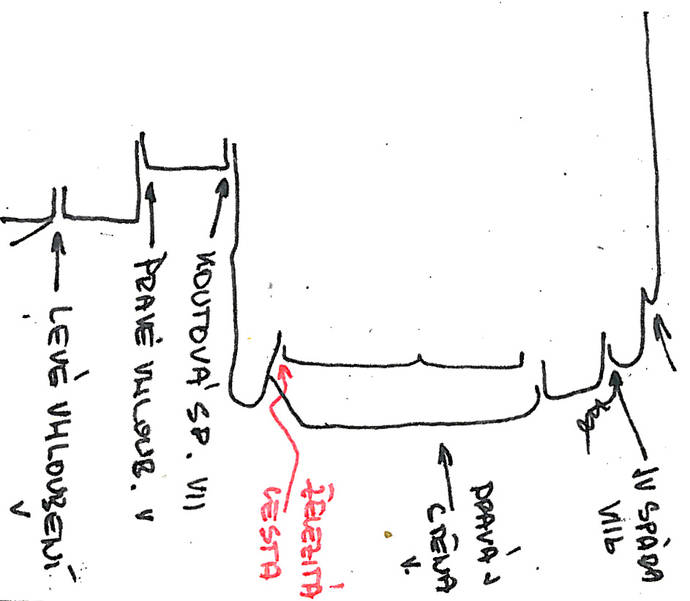 JV SPÁRA
VIIb
PRAVÁ J
STĚNA
V.
ŽELEZITÁ
CESTA
KOUTOVÁ SP. VII
PRAVÉ VHLOUB. V
LEVÉ VHLOUBENÍ
V